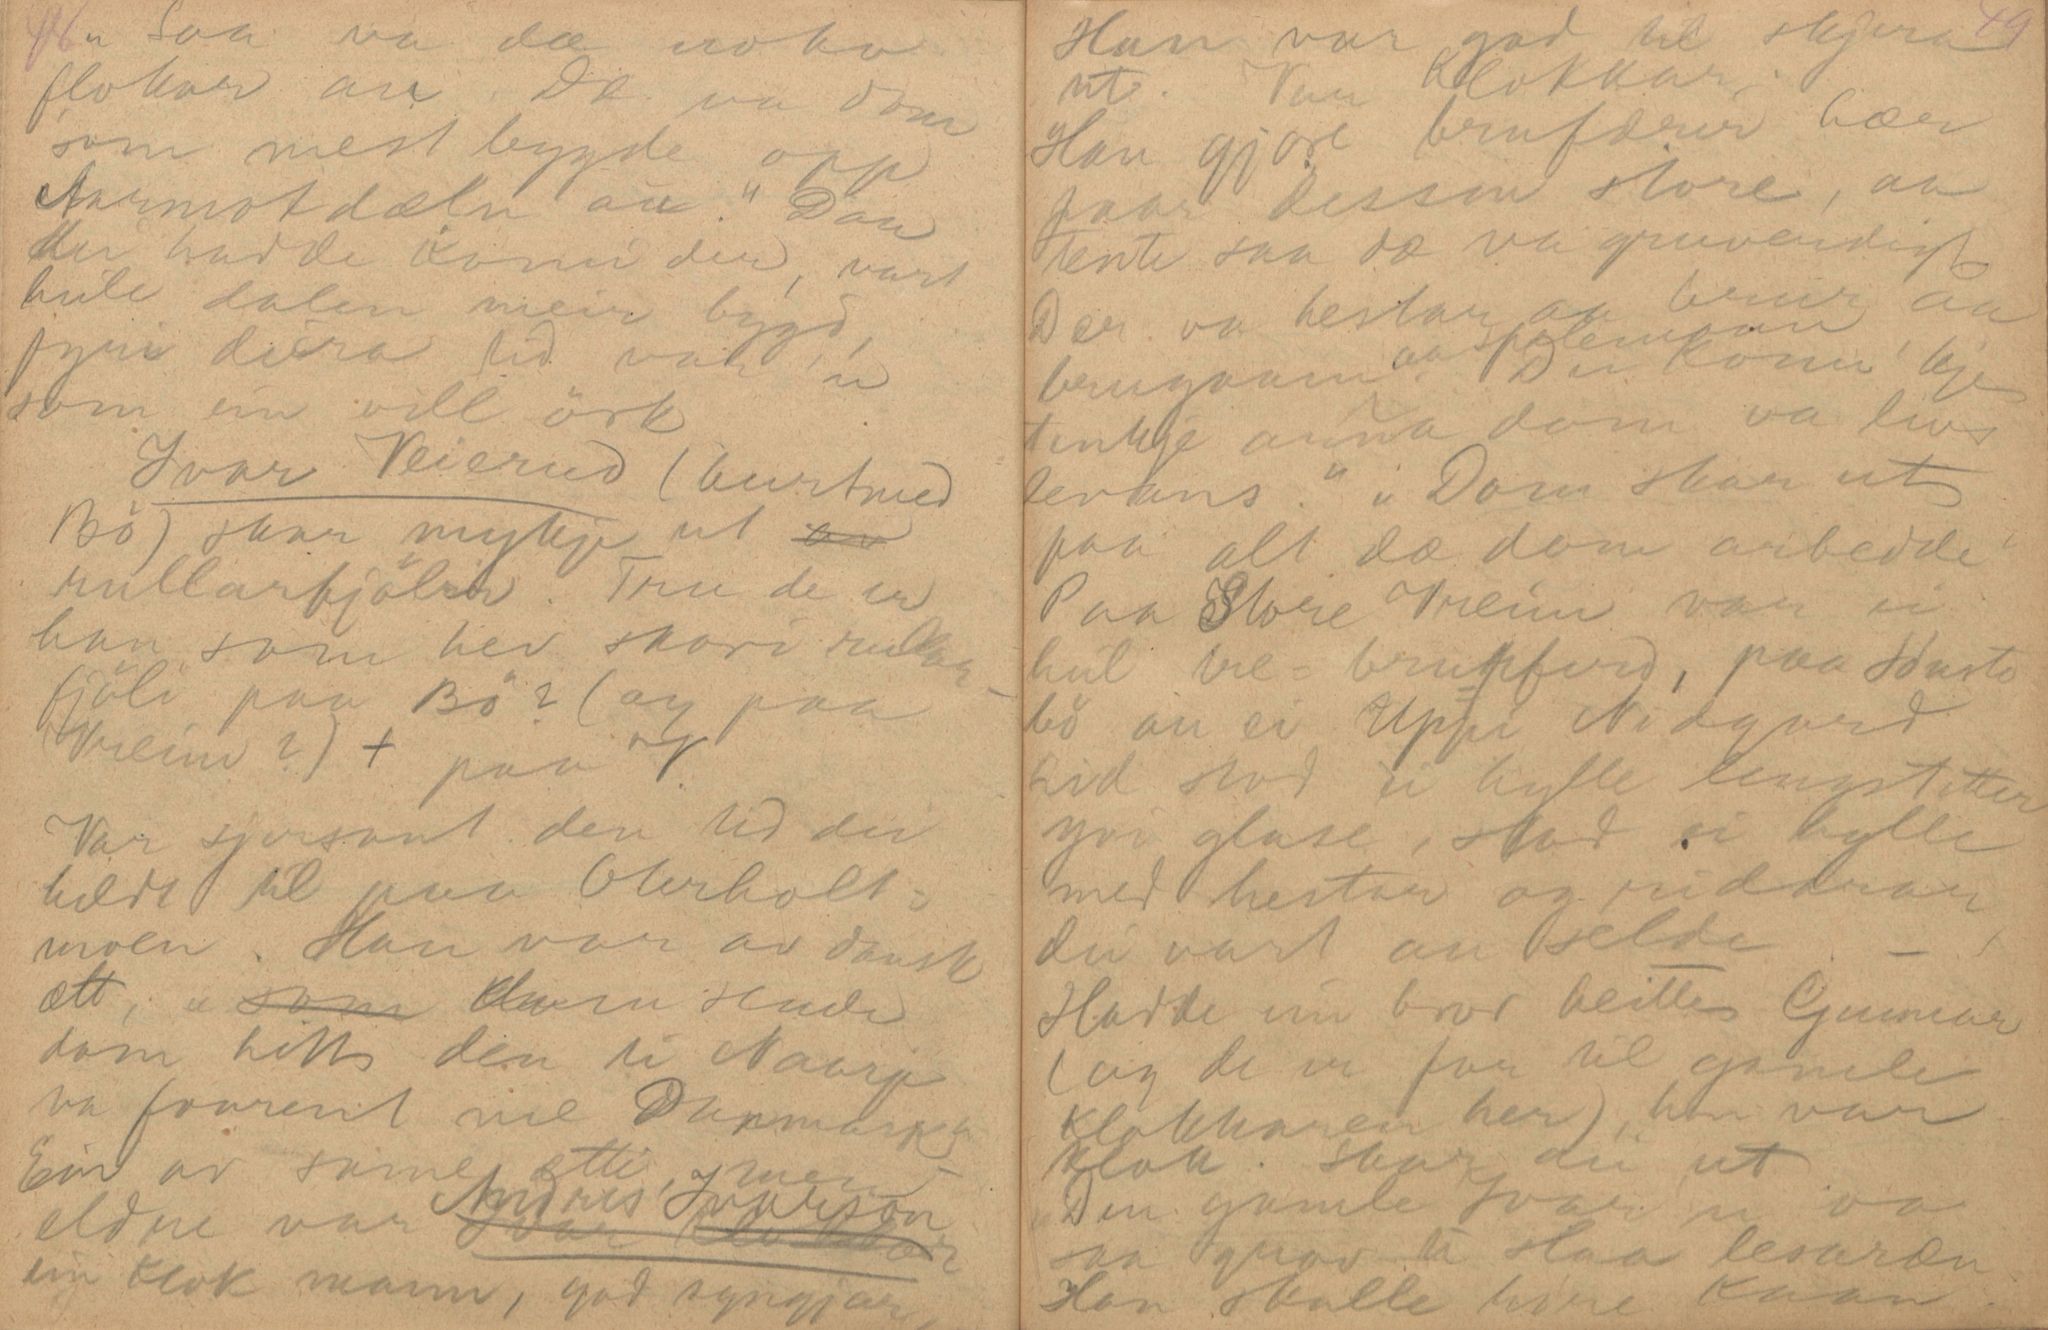 "Saa va dæ noko
flokar au. Dæ va dom
som mest bygde opp
Aarmotdæln au." Dau
dei hadde komi der, vart
heile dalen meir bygd,
fyri deira tid var 'n
som ein vill örk
Ivar Veierud (burtmed
Bö) skar mykje ut av
rullarfjölir. Tru de er
han som hev skori rullar-
fjöli paa Bö? (og paa
Vreim?) + paa
Var sjersant den tid dei
heldt til paa Oterholt-
moen. Han var av dansk
ætt, " som
dom hitts den ti Naarje
va foorent me Danmark"
Ein av same ætti, men
eldre var Ivar Klokkar Andres Ivarson
ein klok mann, god syngjar,
46
49
Han var god til skjera
ut. Var Klokkar.
Han gjorde brufærir hær
paar dessom store, aa
tente saa dæ va gruvendigt
Der va hestar aa brur aa
brugaam aa spelemann. Dei komu kje
tenkje anna dom va livs
levans." "Dom skar ut
paa alt dæ dom arbedde"
Paa Store Vreim var ei
heil tre-brupferd, paa Sönsto
bö au ei Uppi Nidgard
Lid stod ei hylle lengst etter
yvi glase, stod ei hylle
med hestar og ridarar,
dei vart au selde. -
Hadde ein bror heitte Gunnar
(og de er far til gamle
klokkaren her), han var
klok. Skar du ut
"Den gamle Ivar'n va
saa grov ti slaa lesaræn
Han skulle höre kaan.